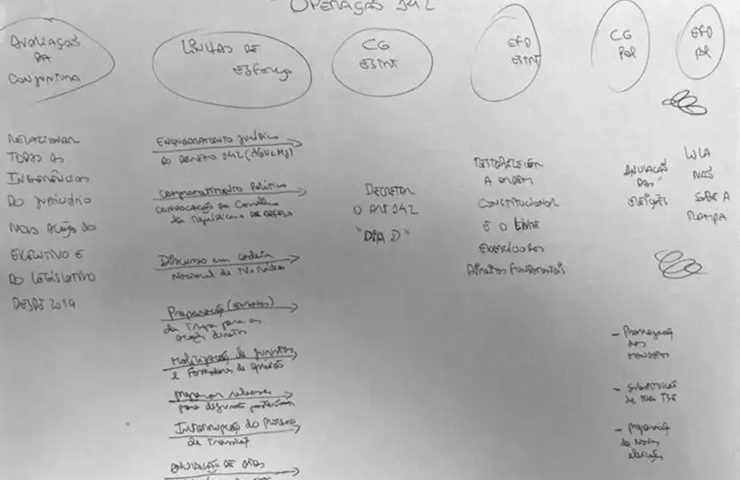 OPERAÇÃO 142
AVALIAÇÃO
DA
CONJUNTURA
LINHAS DE
ESFORÇO
CG
ESTNT
EFD
ESTNT
CG
POL
EFD
POL
RELACIONAR
TODAS AS
INTERFERÊNCIAS
DO JUDICIÁRIO
NAS AÇÃO DO
EXECUTIVO E
DO LEGISLATIVO
DESDE 2019
ENQUADRAMENTO JURÍDICO
DO DECRETO 142 (AGU e MJ)
COMPROMETIMENTO POLÍTICO
CONVOCAÇÃO DO CONSELHO
DA REPÚBLICA E DE DEFESA
Discurso em cadeia
Nacional de TV e Rádio
Preparação
da tropa para as
ações diretas
Mobilização de juristas
e Formadores de opinião
para
Interrupção do Processo
de transição
ANULAÇÃO DE ATOS
DECRETAR
O ART 142
"DIA D"
RESTABELECER
A ORDEM
CONSTITUCIONAL
E O LIVRE
EXERCÍCIO DOS
DIREITOS FUNDAMENTAIS
ANULAÇÃO
DAS
ELEIÇÕES
LULA
NÃO
SOBE A
RAMPA
- Prorrogação
dos
MANDATOS
- SUBSTITUIÇÃO
de todo TSE
- preparação
de novas
eleições